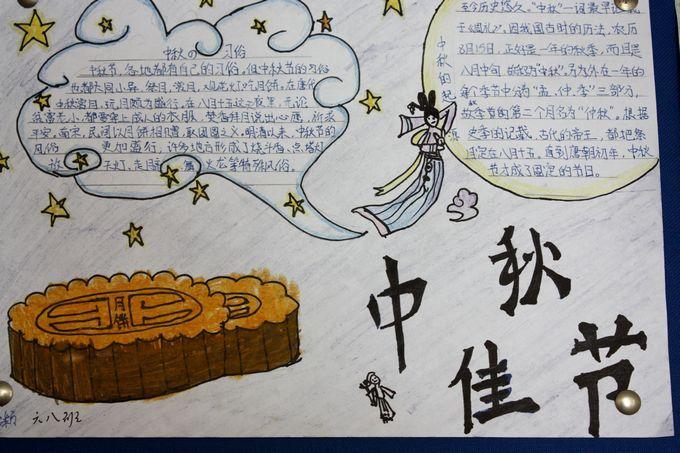 中秋の 习俗
中秋节，各地都有自己的习俗，但中秋节的习俗
也都大同小异。祭月，赏月，观花灯，吃月饼。在唐代
中秋赏月、玩月颇为盛行。在八月十五之夜里，无论
贫富老小，都要穿上成人的衣服，焚香拜月说出心愿，祈求
平安。南宋，民间以月饼相赠，取团圆之义。明清以来，中秋节的
风俗 更加盛行，许多地方形成了烧斗香、点塔灯
放 灯、走月 火龙等特殊风俗。
中秋的起源
至今历史悠久。“中秋”一词最早
于《周礼》。因我国古时的历法，农历
8月15日，正好是一年的秋季，而且是
八月中旬，故称为“中秋”。另为外在一年的
每个季节中分为“孟、仲、季”三部分，
故季节的第二个月名为“仲秋”。根据
史季的记载，古代的帝王，都把祭
月定在八月十五。直到唐朝初年，中秋
节才成了固定的节日。
月饼
中秋
佳节
六八班